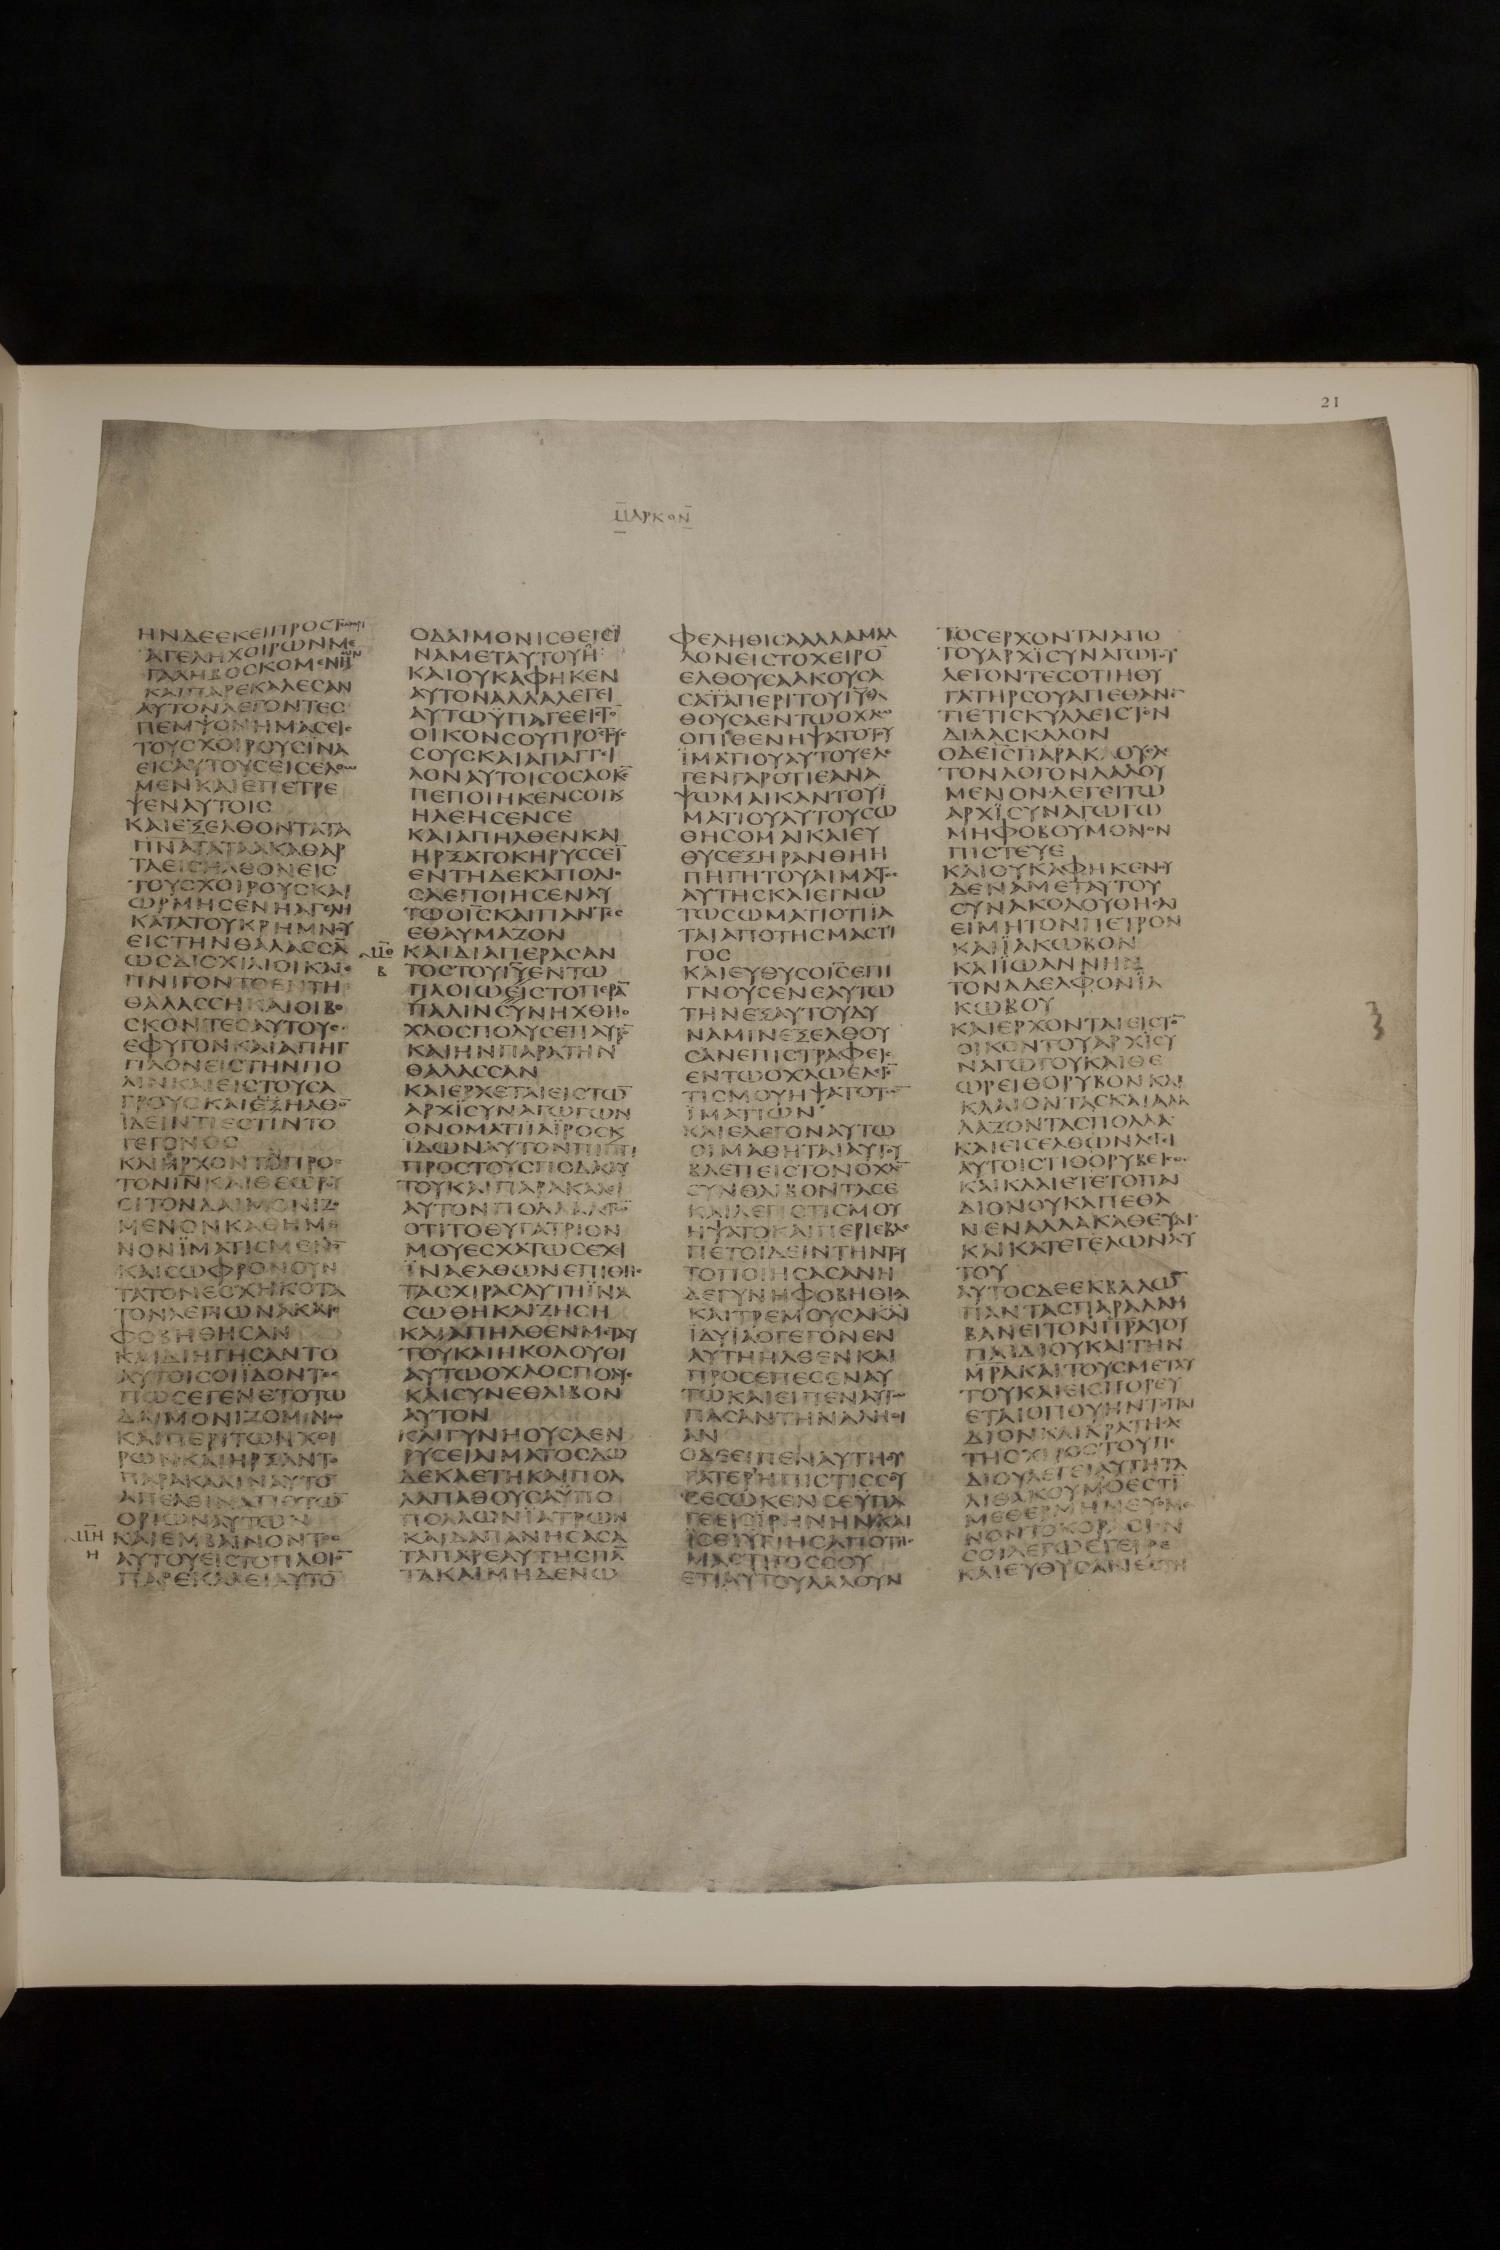 21
ΜΑΡΚΟΝ
ΗΝΔΕΕΚΕΙΠΡΟΣΤΩΟΡΙ
ΑΓΕΛΗΧΟΙΡΩΝΜΕ
ΓΑΛΗΒΟΣΚΟΜΕΝΗ
ΚΑΙΠΑΡΕΚΑΛΕΣΑΝ
ΑΥΤΟΝΛΕΓΟΝΤΕΣ
ΠΕΜΨΟΝΗΜΑΣΕΙΣ
ΤΟΥΣΧΟΙΡΟΥΣΪΝΑ
ΕΙΣΑΥΤΟΥΣΕΙΣΕΛΘΩ
ΜΕΝΚΑΙΕΠΕΤΡΕ
ΨΕΝΑΥΤΟΙΣ
ΚΑΙΕΞΕΛΘΟΝΤΑΤΑ
ΠΝΑΤΑΤΑΑΚΑΘΑΡ
ΤΑΕΙΣΗΛΘΟΝΕΙΣ
ΤΟΥΣΧΟΙΡΟΥΣΚΑΙ
ΩΡΜΗΣΕΝΗΑΓΕΛΗ
ΚΑΤΑΤΟΥΚΡΗΜΝΟΥ
ΕΙΣΤΗΝΘΑΛΑΣΣΑ̅
ΩΣΔΙΣΧΙΛΙΟΙΚΑΙΕ
ΠΝΙΓΟΝΤΟΕΝΤΗ
ΘΑΛΑΣΣΗΚΑΙΟΙΒΟ
ΣΚΟΝΤΕΣΑΥΤΟΥΣ
ΕΦΥΓΟΝΚΑΙΑΠΗΓ
ΓΙΛΟΝΕΙΣΤΗΝΠΟ
ΛΙΝΚΑΙΕΙΣΤΟΥΣΑ
ΓΡΟΥΣΚΑΙΕΞΗΛΘΟ̅
ΪΔΕΙΝΤΙΕΣΤΙΝΤΟ
ΓΕΓΟΝΟΣ
ΚΑΙΗΡΧΟΝΤΟΠΡΟΣ
ΤΟΝΙΝ̅ΚΑΙΘΕΩΡΟΥ
ΣΙΤΟΝΔΑΙΜΟΝΙΖΟ
ΜΕΝΟΝΚΑΘΗΜΕ
ΝΟΝΪΜΑΤΙΣΜΕΝΟ̅
ΚΑΙΣΩΦΡΟΝΟΥΝ
ΤΑΤΟΝΕΣΧΗΚΟΤΑ
ΤΟΝΛΕΓΙΩΝΑΚΑΙΕ
ΦΟΒΗΘΗΣΑΝ
ΚΑΙΔΙΗΓΗΣΑΝΤΟ
ΑΥΤΟΙΣΟΙΪΔΟΝΤΕΣ
ΠΩΣΕΓΕΝΕΤΟΤΩ
ΔΑΙΜΟΝΙΖΟΜΕΝΩ
ΚΑΙΠΕΡΙΤΩΝΧΟΙ
ΡΩΝΚΑΙΗΡΞΑΝΤΟ
ΠΑΡΑΚΑΛΙΝΑΥΤΟ̅
ΑΠΕΛΘΙΝΑΠΟΤΩ̅
ΟΡΙΩΝΑΥΤΩΝ
ΜΗ ΚΑΙΕΜΒΑΙΝΟΝΤΟΣ
Η ΑΥΤΟΥΕΙΣΤΟΠΛΟΙΟ̅
ΠΑΡΕΚΑΛΕΙΑΥΤΟ̅
ΟΔΑΙΜΟΝΙΣΘΕΙΣΪ
ΝΑΜΕΤΑΥΤΟΥΗ
ΚΑΙΟΥΚΑΦΗΚΕΝ
ΑΥΤΟΝΑΛΛΑΛΕΓΕΙ
ΑΥΤΩΫΠΑΓΕΕΙΣΤΟ̅
ΟΙΚΟΝΣΟΥΠΡΟΣΤΟΥΣ
ΣΟΥΣΚΑΙΑΠΑΓΓΕΙ
ΛΟΝΑΥΤΟΙΣΟΣΑΟΚΣ̅
ΠΕΠΟΙΗΚΕΝΣΟΙΚ
ΗΛΕΗΣΕΝΣΕ
ΚΑΙΑΠΗΛΘΕΝΚΑΙ
ΗΡΞΑΤΟΚΗΡΥΣΣΕΙ̅
ΕΝΤΗΔΕΚΑΠΟΛΙΟ
ΣΑΕΠΟΙΗΣΕΝΑΥ
ΤΩΟΙΣ̅ΚΑΙΠΑΝΤΕΣ
ΕΘΑΥΜΑΖΟΝ
ΜΘ ΚΑΙΔΙΑΠΕΡΑΣΑΝ
Β ΤΟΣΤΟΥΙΥ̅ΕΝΤΩ
ΠΛΟΙΩΕΙΣΤΟΠΕΡΑ̅
ΠΑΛΙΝΣΥΝΗΧΘΗΟ
ΧΛΟΣΠΟΛΥΣΕΠΑΥΤΟ̅
ΚΑΙΗΝΠΑΡΑΤΗΝ
ΘΑΛΑΣΣΑΝ
ΚΑΙΕΡΧΕΤΑΙΕΙΣΤΩ̅
ΑΡΧΙΣΥΝΑΓΩΓΩΝ
ΟΝΟΜΑΤΙΪΑΪΡΟΣΚ
ΪΔΩΝΑΥΤΟΝΠΙΠΤΙ
ΠΡΟΣΤΟΥΣΠΟΔΑΣΑΥ
ΤΟΥΚΑΙΠΑΡΑΚΑΛΕΙ
ΑΥΤΟΝΠΟΛΛΑΛΕΓΩ̅
ΟΤΙΤΟΘΥΓΑΤΡΙΟΝ
ΜΟΥΕΣΧΑΤΩΣΕΧΕΙ
ΪΝΑΕΛΘΩΝΕΠΙΘΗΣ
ΤΑΣΧΙΡΑΣΑΥΤΗΪΝΑ
ΣΩΘΗΚΑΙΖΗΣΗ
ΚΑΙΑΠΗΛΘΕΝΜΕΤΑΥ
ΤΟΥΚΑΙΗΚΟΛΟΥΘΙ
ΑΥΤΩΟΧΛΟΣΠΟΛΥΣ
ΚΑΙΣΥΝΕΘΛΙΒΟΝ
ΑΥΤΟΝ
ΚΑΙΓΥΝΗΟΥΣΑΕΝ
ΡΥΣΕΙΑΙΜΑΤΟΣΔΩ
ΔΕΚΑΕΤΗΚΑΙΠΟΛ
ΛΑΠΑΘΟΥΣΑΫΠΟ
ΠΟΛΛΩΝΪΑΤΡΩΝ
ΚΑΙΔΑΠΑΝΗΣΑΣΑ
ΤΑΠΑΡΕΑΥΤΗΣΠΑ̅
ΤΑΚΑΙΜΗΔΕΝΩ
ΦΕΛΗΘΙΣΑΑΛΛΑΜΑΛ
ΛΟΝΕΙΣΤΟΧΕΙΡΟ̅
ΕΛΘΟΥΣΑΑΚΟΥΣΑ
ΣΑΤΑΠΕΡΙΤΟΥΙΥ̅ΕΛ
ΘΟΥΣΑΕΝΤΩΟΧΛΩ
ΟΠΙΘΕΝΗΨΑΤΟΤΟΥ
ΪΜΑΤΙΟΥΑΥΤΟΥΕΛΕ
ΓΕΝΓΑΡΟΤΙΕΑΝΑ
ΨΩΜΑΙΚΑΝΤΟΥΪ
ΜΑΤΙΟΥΑΥΤΟΥΣΩ
ΘΗΣΟΜΑΙΚΑΙΕΥ
ΘΥΣΕΞΗΡΑΝΘΗΗ
ΠΗΓΗΤΟΥΑΙΜΑΤΟΣ
ΑΥΤΗΣΚΑΙΕΓΝΩ
ΤΩΣΩΜΑΤΙΟΤΙΪΑ
ΤΑΙΑΠΟΤΗΣΜΑΣΤΙ
ΓΟΣ
ΚΑΙΕΥΘΥΣΟΙΣ̅ΕΠΙ
ΓΝΟΥΣΕΝΕΑΥΤΩ
ΤΗΝΕΞΑΥΤΟΥΔΥ
ΝΑΜΙΝΕΞΕΛΘΟΥ
ΣΑΝΕΠΙΣΤΡΑΦΕΙΣ
ΕΝΤΩΟΧΛΩΕΛΕΓΕ̅
ΤΙΣΜΟΥΗΨΑΤΟΤΩ̅
ΪΜΑΤΙΩΝ
ΚΑΙΕΛΕΓΟΝΑΥΤΩ
ΟΙΜΑΘΗΤΑΙΑΥΤΟΥ
ΒΛΕΠΕΙΣΤΟΝΟΧΛΟ̅
ΣΥΝΘΛΙΒΟΝΤΑΣΕ
ΚΑΙΛΕΓΙΣΤΙΣΜΟΥ
ΗΨΑΤΟΚΑΙΠΕΡΙΕΒΛΕ
ΠΕΤΟΪΔΕΙΝΤΗΝΤΟΥ
ΤΟΠΟΙΗΣΑΣΑΝΗ
ΔΕΓΥΝΗΦΟΒΗΘΙΣΑ
ΚΑΙΤΡΕΜΟΥΣΑΚΑΙ
ΪΔΥΪΑΟΓΕΓΟΝΕΝ
ΑΥΤΗΗΛΘΕΝΚΑΙ
ΠΡΟΣΕΠΕΣΕΝΑΥ
ΤΩΚΑΙΕΙΠΕΝΑΥΤΩ
ΠΑΣΑΝΤΗΝΑΛΗΘΙ
ΑΝ
ΟΔΕΕΙΠΕΝΑΥΤΗΘΥ
ΓΑΤΕΡΗΠΙΣΤΙΣΣΟΥ
ΣΕΣΩΚΕΝΣΕΫΠΑ
ΓΕΕΙΣΙΡΗΝΗΝΚΑΙ
ΪΣΘΙΫΓΙΗΣΑΠΟΤΗΣ
ΜΑΣΤΙΓΟΣΣΟΥ
ΕΤΙΑΥΤΟΥΛΑΛΟΥΝ
ΤΟΣΕΡΧΟΝΤΑΙΑΠΟ
ΤΟΥΑΡΧΙΣΥΝΑΓΩΓΟΥ
ΛΕΓΟΝΤΕΣΟΤΙΗΘΥ
ΓΑΤΗΡΣΟΥΑΠΕΘΑΝΕ̅
ΤΙΕΤΙΣΚΥΛΛΕΙΣΤΟΝ
ΔΙΔΑΣΚΑΛΟΝ
ΟΔΕΙΣ̅ΠΑΡΑΚΟΥΣΑΣ
ΤΟΝΛΟΓΟΝΛΑΛΟΥ
ΜΕΝΟΝΛΕΓΕΙΤΩ
ΑΡΧΙΣΥΝΑΓΩΓΩ
ΜΗΦΟΒΟΥΜΟΝΟΝ
ΠΙΣΤΕΥΕ
ΚΑΙΟΥΚΑΦΗΚΕΝΟΥ
ΔΕΝΑΜΕΤΑΥΤΟΥ
ΣΥΝΑΚΟΛΟΥΘΗΣΑΙ
ΕΙΜΗΤΟΝΠΕΤΡΟΝ
ΚΑΙΪΑΚΩΒΟΝ
ΚΑΙΪΩΑΝΝΗΝ
ΤΟΝΑΔΕΛΦΟΝΪΑ
ΚΩΒΟΥ
ΚΑΙΕΡΧΟΝΤΑΙΕΙΣΤΟ̅
ΟΙΚΟΝΤΟΥΑΡΧΙΣΥ
ΝΑΓΩΓΟΥΚΑΙΘΕ
ΩΡΕΙΘΟΡΥΒΟΝΚΑΙ
ΚΛΑΙΟΝΤΑΣΚΑΙΑΛΑ
ΛΑΖΟΝΤΑΣΠΟΛΛΑ
ΚΑΙΕΙΣΕΛΘΩΝΛΕΓΙ
ΑΥΤΟΙΣΤΙΘΟΡΥΒΕΙΣΘΕ
ΚΑΙΚΛΑΙΕΤΕΤΟΠΑΙ
ΔΙΟΝΟΥΚΑΠΕΘΑ
ΝΕΝΑΛΛΑΚΑΘΕΥΔΙ
ΚΑΙΚΑΤΕΓΕΛΩΝΑΥ
ΤΟΥ
ΑΥΤΟΣΔΕΕΚΒΑΛΩ̅
ΠΑΝΤΑΣΠΑΡΑΛΑΜ
ΒΑΝΕΙΤΟΝΠΡΑ̅ΤΟΥ
ΠΑΙΔΙΟΥΚΑΙΤΗΝ
ΜΡΑ̅ΚΑΙΤΟΥΣΜΕΤΑΥ
ΤΟΥΚΑΙΕΙΣΠΟΡΕΥ
ΕΤΑΙΟΠΟΥΗΝΤΟΠΑΙ
ΔΙΟΝΚΑΙΚΡΑΤΗΣΑΣ
ΤΗΣΧΙΡΟΣΤΟΥΠΑΙ
ΔΙΟΥΛΕΓΕΙΑΥΤΗΤΑ
ΛΙΘΑΚΟΥΜΟΕΣΤΙ̅
ΜΕΘΕΡΜΗΝΕΥΟΜΕ
ΝΟΝΤΟΚΟΡΑΣΙΟΝ
ΣΟΙΛΕΓΩΕΓΕΙΡΕ
ΚΑΙΕΥΘΥΣΑΝΕΣΤΗ